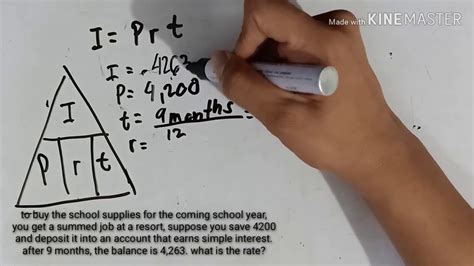 Made with KINEMASTER
I = Prt
I = 4263
P= 4,200
t= 9 months =
12
r=
I
P r t
to buy the school supplies for the coming school year,
you get a summed job at a resort, suppose you save 4200
and deposit it into an account that earns simple interest.
after 9 months, the balance is 4,263. what is the rate?